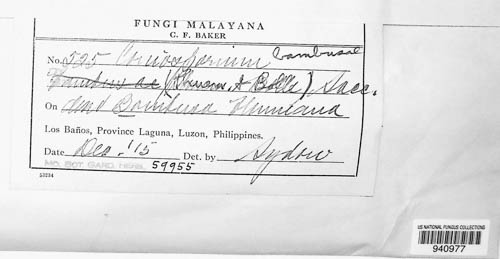 FUNGI MALAYANA
C. F. BAKER
No. 525 Coniosporium bambusae
(Thuem. & Bolle) Sacc.
On dead Bambusa Blumeana
Los Baños, Province Laguna, Luzon, Philippines.
Date Dec. '15 Det. by Sydow
MO. BOT. GARD. HERB. 59955
53234
US NATIONAL FUNGUS COLLECTIONS
940977